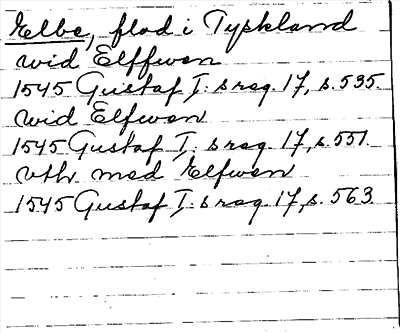 Elbe, flod i Tyskland
wid Elffwen
1545 Gustaf I:s reg. 17, s. 535.
wid Elfwen
1545 Gustaf I:s reg. 17, s. 551.
vth med Elfwen
1545 Gustaf I:s reg. 17, s. 563